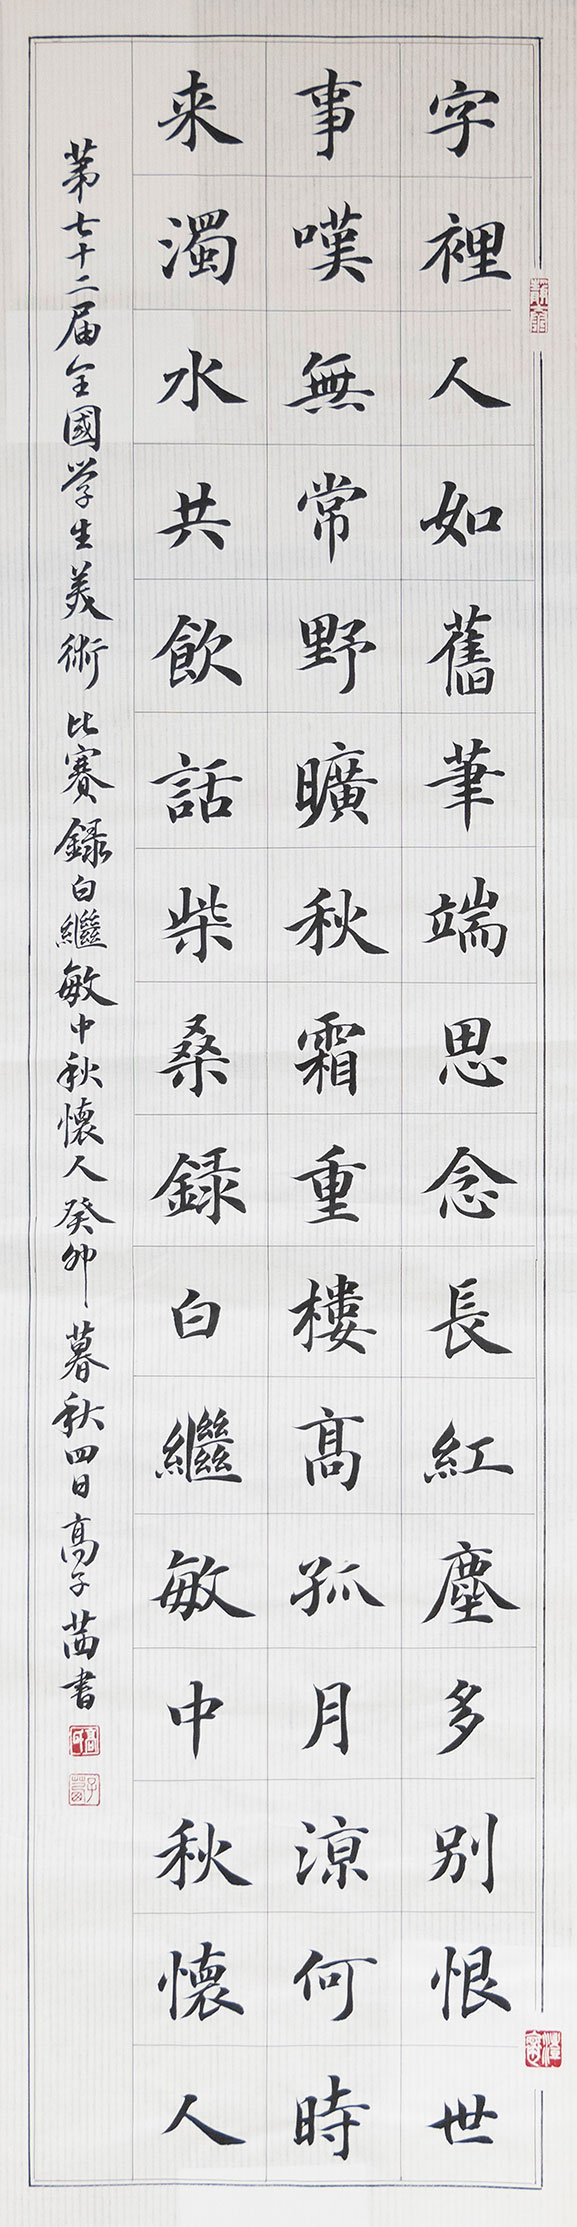 字裡人如舊筆端思念長紅塵多別恨世
事嘆無常野曠秋霜重樓高孤月涼何時
来濁水共飲話柴桑録白繼敏中秋懷人
第七十二届全國学生美術比賽録白繼敏中秋懷人癸卯暮秋四日高子茜書